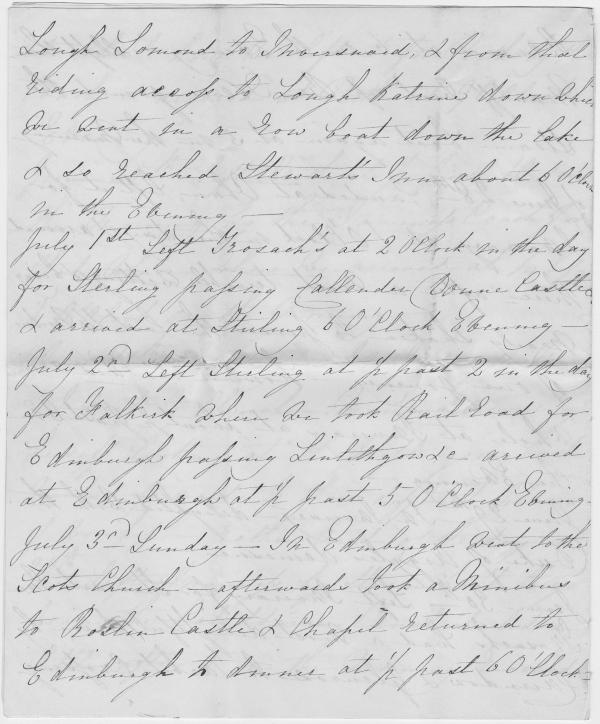 Lough Lomond to Inversnaid, & from that
riding accoss to Lough Katrine down which
we went in a row boat down the lake
& so reached Stewart's Inn about 6 O'Clock
in the Evening —
July 1st Left Trosach's at 2 O'Clock in the day
for Sterling passing Callender, Doune Castle &
& arrived at Stirling 6 O'Clock Evening —
July 2nd Left Sterling at ½ past 2 in the day
for Falkirk where we took Rail road for
Edinburgh passing Linlithgow &c arrived
at Edinburgh at ½ past 5 O'Clock Evening
July 3rd Sunday — In Edinburgh went to the
Scots Church — afterwards took a Minibus
to Roslin Castle & Chapel returned to
Edinburgh to dinner at ½ past 6 O'Clock —